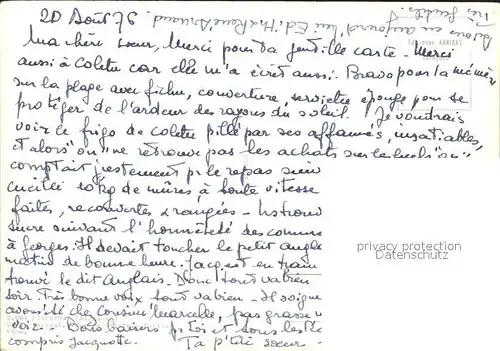 20 Août 76
Ma chère soeur, Merci pour ta gentille carte - Merci
aussi à Colette car elle m'a écrit aussi. Bravo pour la mémère
sur la plage avec fichu, couverture, serviette éponge pour se
protéger de l'ardeur des rayons du soleil. Je voudrais
voir le frigo de Colette pillé par ses affamés, insatiables,
et alors "on" ne retrouve pas les achats sur lesquels "on"
comptait justement pr le repas
cueilli 10 kg de mûres à toute vitesse
faites, recouvertes & rangées -
sucre suivant l'honnêteté des
à Georges. Il devait toucher le petit
matin de bonne heure. Jacq est en train
trouvé le dit Anglais. Donc tout va bien
soir. Très bonne voix tout va bien - Il soigne
avons été chez cousine Marcelle, pas grasse
voir - Bons baisers pr toi et tous les
compris Jacquotte. Ta p'tite soeur -
privacy protection
DELCAMPE.COM